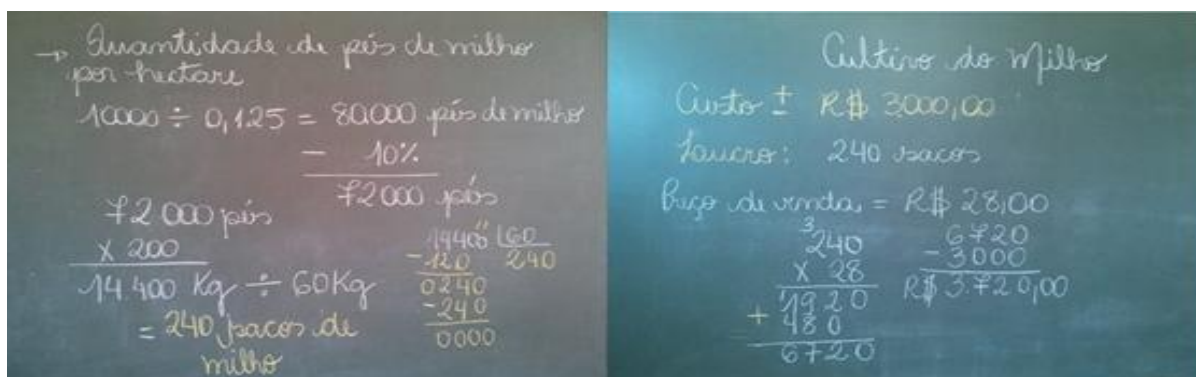 → Quantidade de pés de milho
por hectare
10000 ÷ 0,125 = 80000 pés de milho
- 10%
72000 pés
72 000 pés
x 200
14.400 Kg ÷ 60Kg
= 240 sacos de
milho
14400 60
-120 240
0240
-240
0000
Cultivo do Milho
Custo ± R$ 3000,00
Laucro: 240 sacos
Preço de venda = R$ 28,00
3
240
x 28
1920
+ 480
6720
6720
-3000
R$ 3.720,00